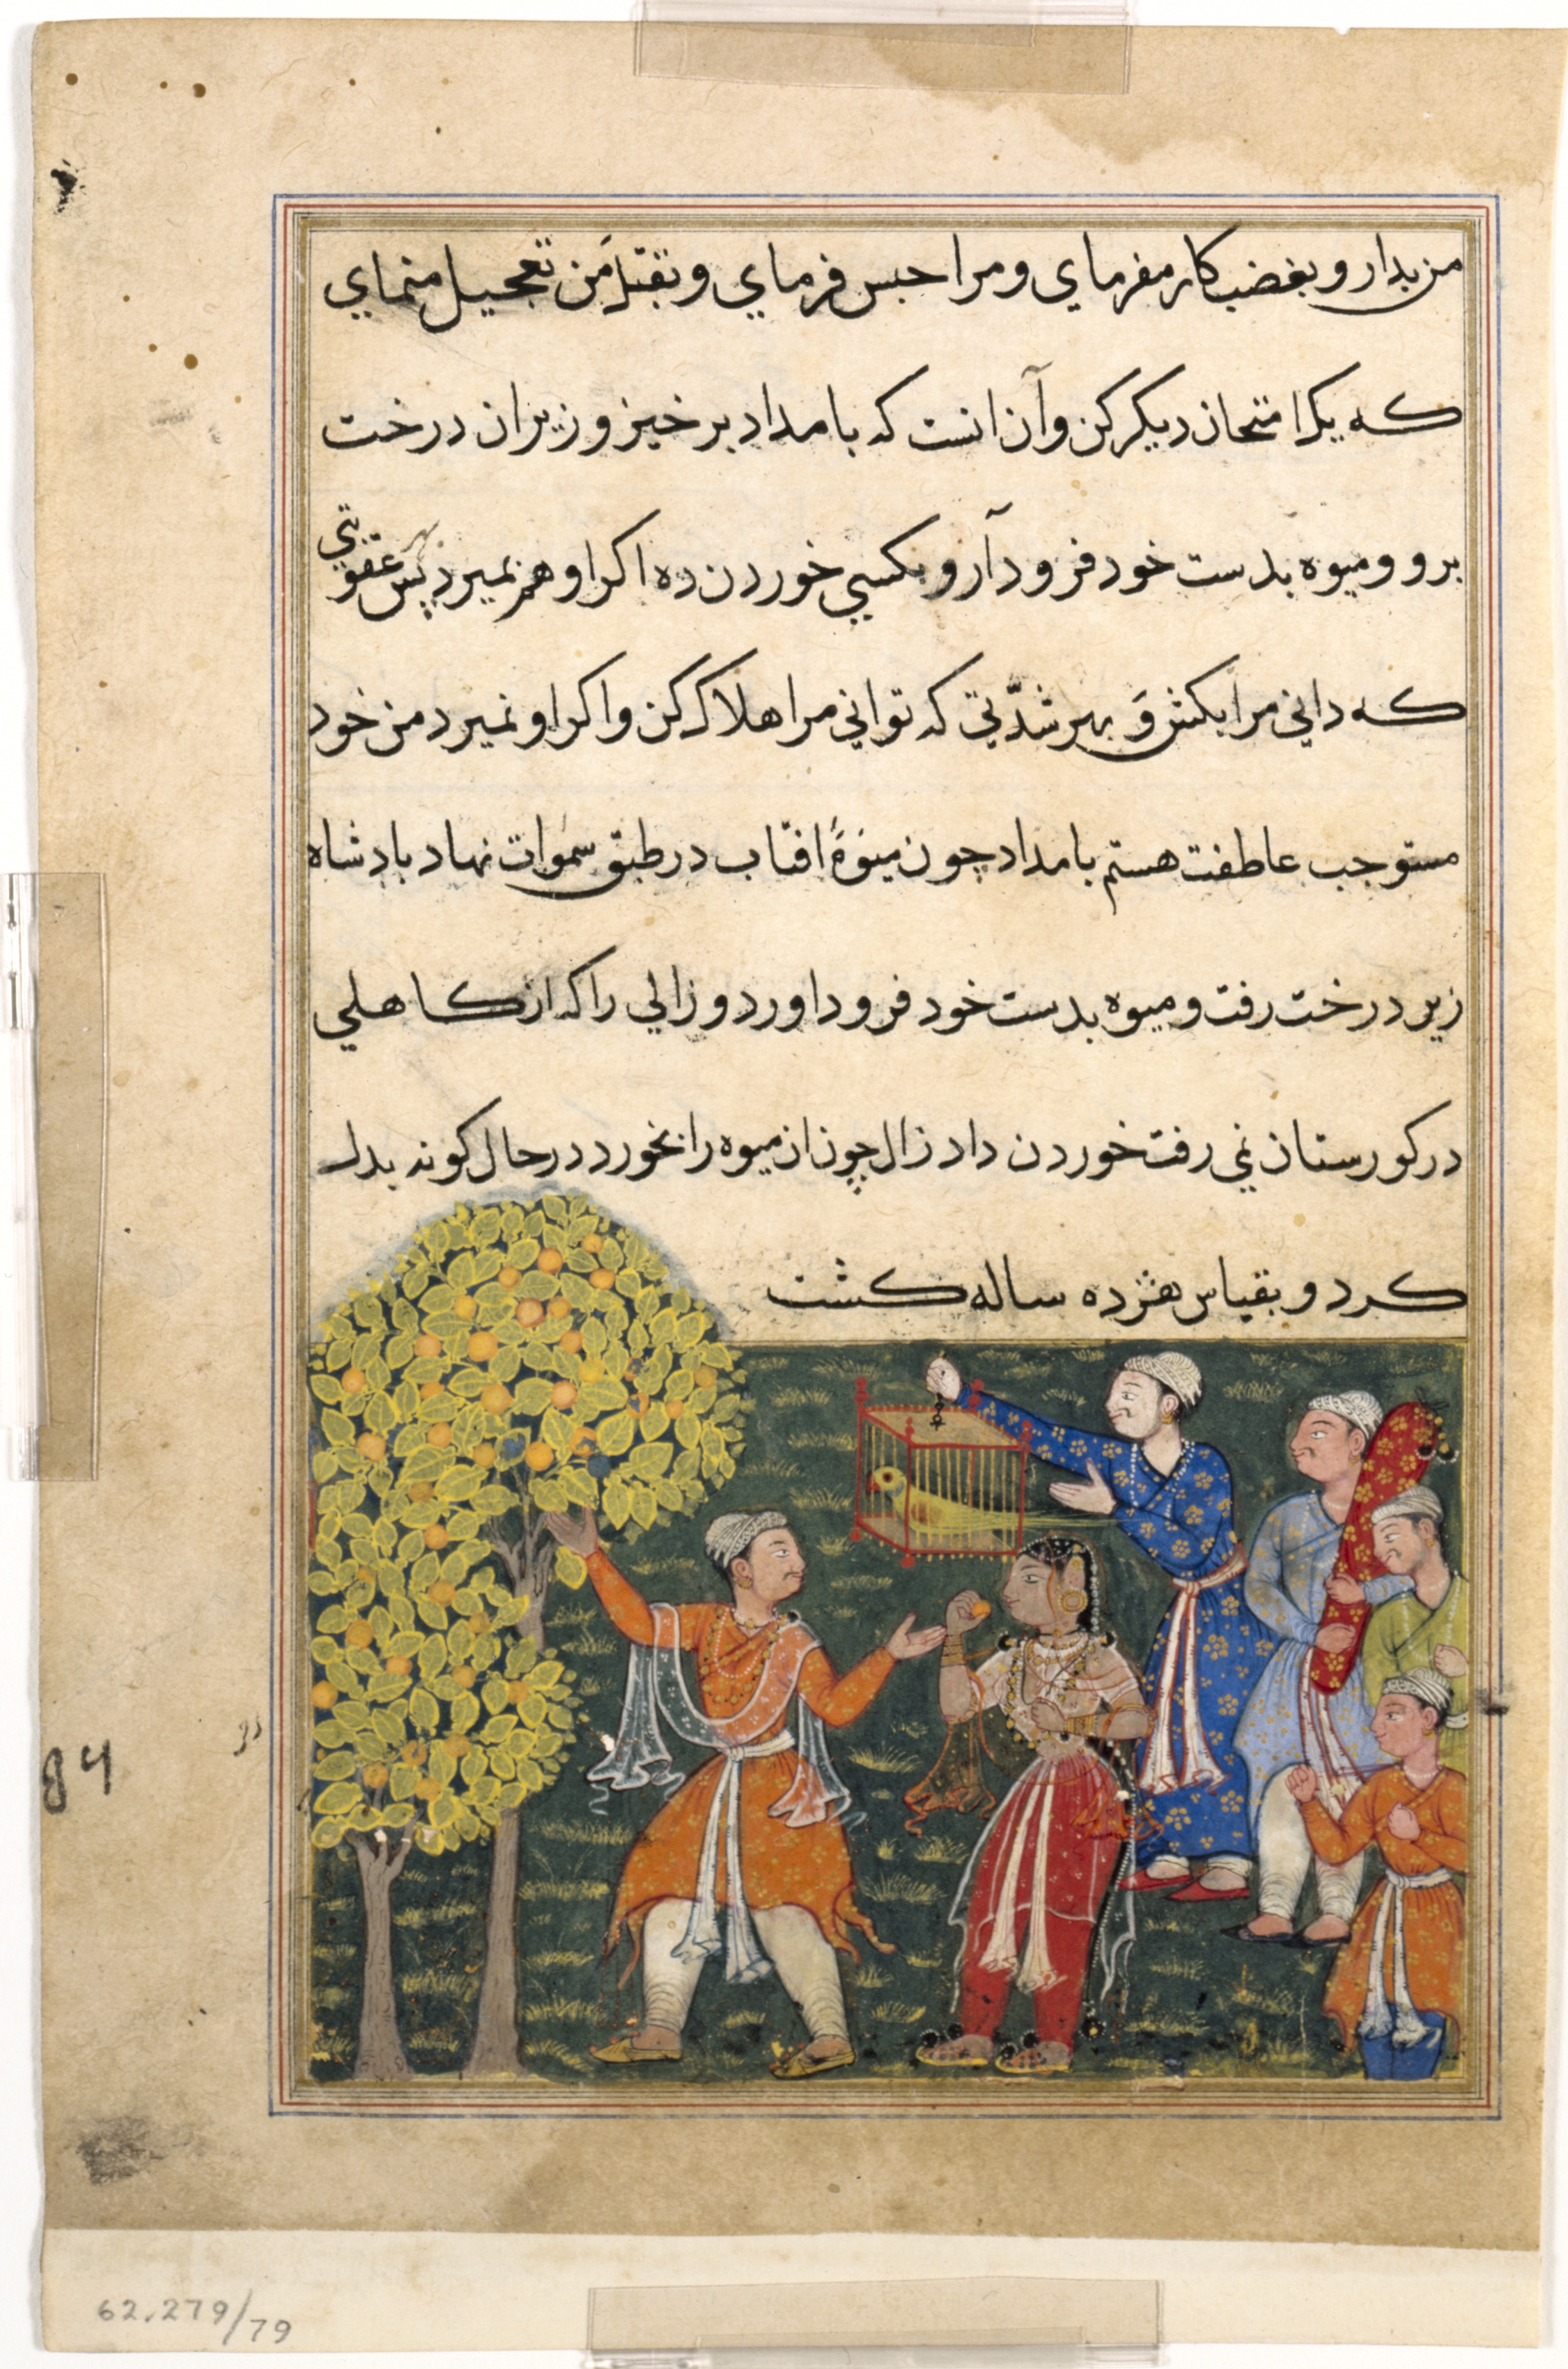 من بدار و بغضب کار مفرمای و مرا حبس فرماي و بقتل من تعجیل منماي
که یک امتحان دیکر کن و آن انست که بامداد بر خیز و زیر ان درخت
برو و میوه بدست خود فرود آر و بکسي خوردن ده اکر او هم نمیرد پس بهر عقوبتي
که داني مرا بکش و بهر شدّتي که تواني مرا هلاک کن و اکر او نمیرد من خود
مستوجب عاطفت هستم بامداد چون میوهٔ افتاب در طبق سموات نهاد بادشاه
زیر درخت رفت و میوه بدست خود فرود اورد و زالي را که از کاهلي
در کورستان نمي رفت خوردن داد زال چون ان میوه را بخورد در حال کونه بدل
کرد و بقیاس هژده ساله کشت
84
62.279/79